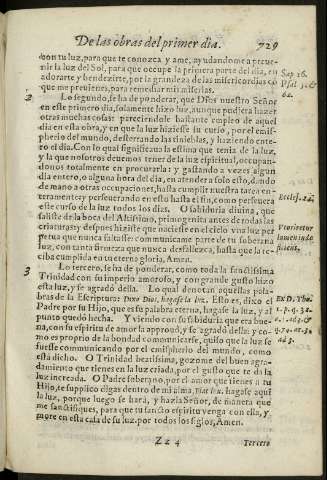 De las obras del primer dia. 729
con tu luz, para que te conozca y ame, ayudandome a preue-
nir la luz del Sol, para que ocupe la primera parte del dia, en
adorarte y bendezirte, por la grandeza de las misericordias cō
que me preuienes, para remediar mis miserias.
Sap 16.
Psal 5. &
62.
2 Lo segundo, se ha de ponderar, que Dios nuestro Señor
en este primero dia, solamente hizo luz, aunque pudiera hazer
otras muchas cosas: pareciendole bastante empleo de aquel
dia en esta obra, y en que la luz hiziesse su curso, por el emis-
pherio del mundo, desterrando las tinieblas, y haziendo ente-
ro el dia. Con lo qual significaua la estima que tenia de la luz,
y la que nosotros deuemos tener de la luz espiritual, ocupan-
donos totalmente en procurarla: y gastando a vezes algun
dia entero, o alguna hora del dia, en atender a solo esto, dando
de mano a otras ocupaciones, hasta cumplir nuestra tarea en-
teramente, y perseuerando en esto hasta el fin, como perseuera
este curso de la luz todos los dias. O sabiduria diuina, que
saliste de la boca del Altissimo, primogenita antes de todas las
criaturas, y despues hiziste que naciesse en el cielo vna luz per
petua que nunca falasse: comunicame parte de tu soberana
luz, con tanta firmeza que nunca desfallezca, hasta que la re-
ciba cumplida en tu eterna gloria, Amen.
Ecclesi. 24.
3 Lo tercero, se ha de ponderar, como toda la sanctissima
Trinidad con su imperio amoroso, y con grande gusto hizo
esta luz, y se agradò della. Lo qual denotan aquellas pala-
bras de la Escriptura: Dixo Dios, hagase la luz. Esto es, dixo el
Padre por su Hijo, que es palabra eterna, hagase la luz, y al
punto quedò hecha. Y viendo con su sabiduria que era bue-
na, con su espiritu de amor la aprouò, y se agradò della: y co-
mo es proprio de la bondad comunicarse, quiso que la luz se
fuesse comunicando por el emispherio del mundo, como
està dicho. O Trinidad beatissima, gozome del buen agra-
damiento que tienes en la luz criada, por el gusto que te da la
luz increada. O Padre soberano, por el amor que tienes a tu
Hijo, te suplico digas dentro de mi alma, Fiat lux. hagase aqui
la luz, porque luego se harà, y hazla Señor, de manera que
me sanctifiques, para que tu sancto espiritu venga con ella, y
more en esta casa de su luz, por todos los siglos, Amen.
Ex D. Tho.
Z z 4 Tercero